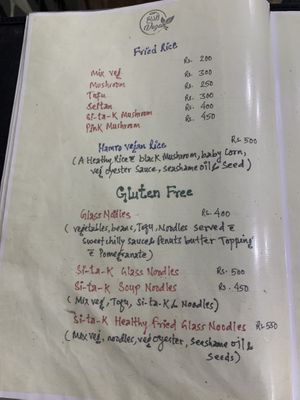 Vegan
Fried Rice
Mix veg Rs. 200
Mushroom Rs. 300
Tofu Rs. 250
Seitan Rs. 300
Si-ta-K Mushroom Rs. 400
Pink Mushroom Rs. 450
Hamro vejan Rice Rs. 500
(A Healthy Rice & black Mushroom, baby corn,
veg oyester Sauce, seashame oil & Seed)
Gluten Free
Glass Nodles Rs. 400
(vegetables, beans, Tofu, Noodles Served &
Sweet chilly sauce & Penuts butter Topping
& Pomegranate)
Si-ta-K Glass Noodles Rs. 500
Si-ta-K Soup Noodles Rs. 450
(Mix veg, Tofu, Si-ta-K & Noodles)
Si-ta-K Healthy Fried Glass Noodles Rs 550
(Mix veg, noodles, veg oyester, seeshame oil &
Seeds)